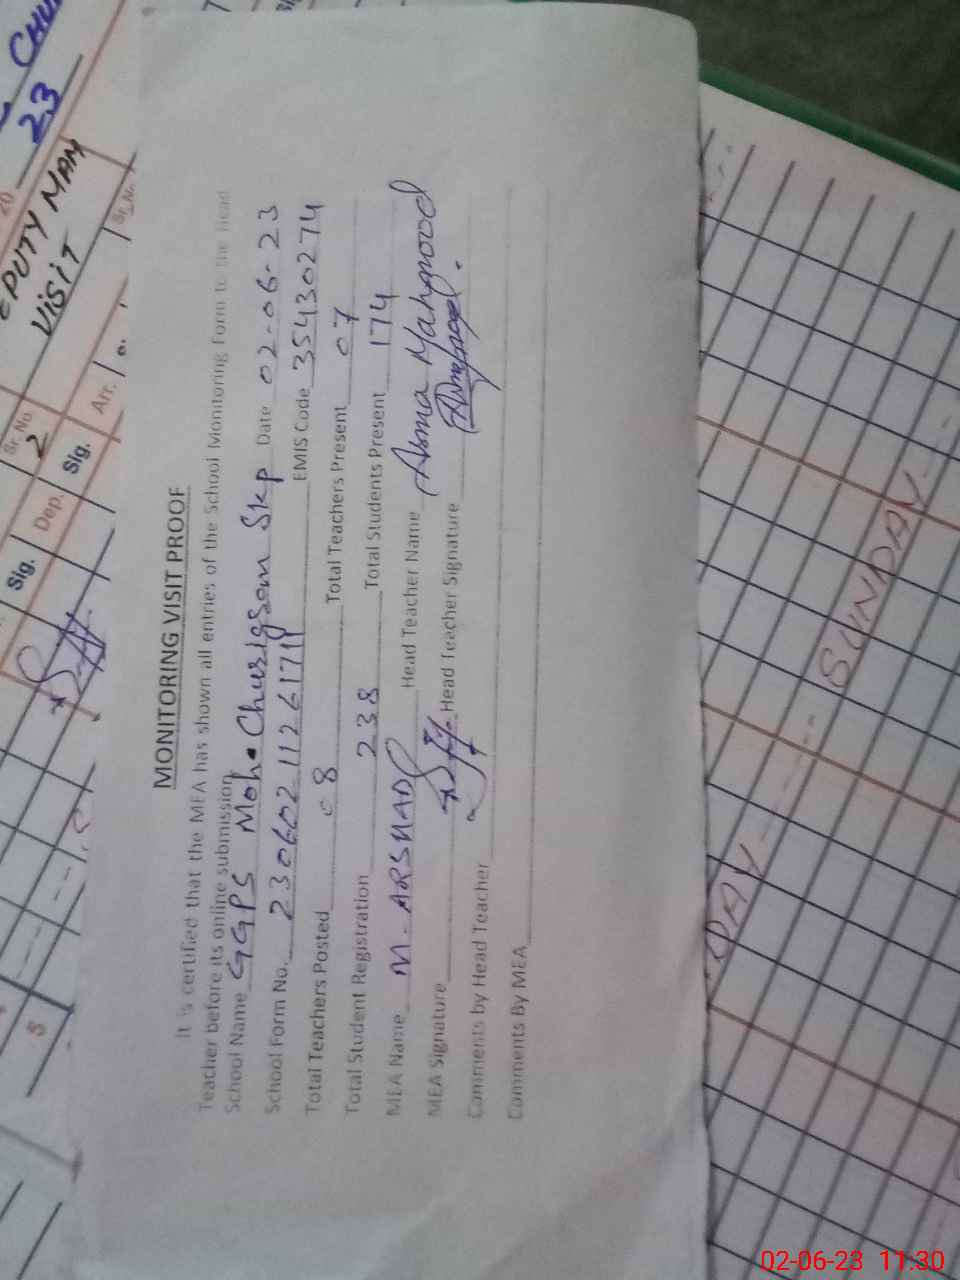 MONITORING VISIT PROOF
It is certified that the MEA has shown all entries of the School Monitoring Form to the Head
Teacher before its online submission.
School Name GGPS Moh. Churigran Skp Date 02-06-23
School Form No. 2306021126171 EMIS Code 35430274
Total Teachers Posted 08 Total Teachers Present 07
Total Student Registration 238 Total Students Present 174
MEA Name M. ARSHAD Head Teacher Name Asma Mahmood
MEA Signature Head Teacher Signature
Comments by Head Teacher
Comments By MEA
23
20
VISIT
Sr. No.
2
Sig. Dep. Sig. Arr.
Sr. No.
5
SUNDAY
02-06-23 11:30